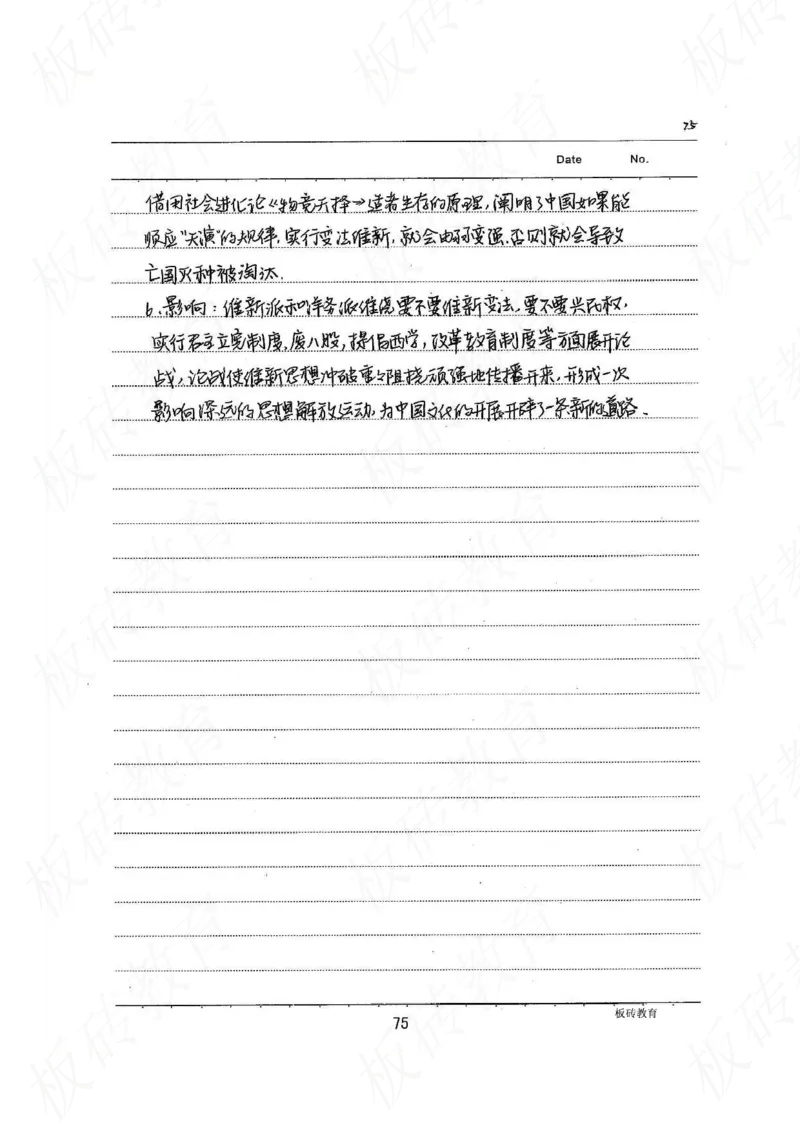 75
Date No.
借用社会进化论《物竞天择→适者生存的原理,阐明了中国如果能
顺应"天演"的规律,实行变法维新,就会由弱变强,否则就会导致
亡国灭种被淘汰.
6、影响:维新派和洋务派维绕要不要维新变法、要不要兴民权,
实行君主立宪制度,废八股,提倡西学,改革教育制度等方面展开论
战,论战使维新思想冲破重重阻挠顽强地传播开来,形成一次
影响深远的思想解放运动,为中国文化的开展开辟了一条新的道路、
75
板砖教育